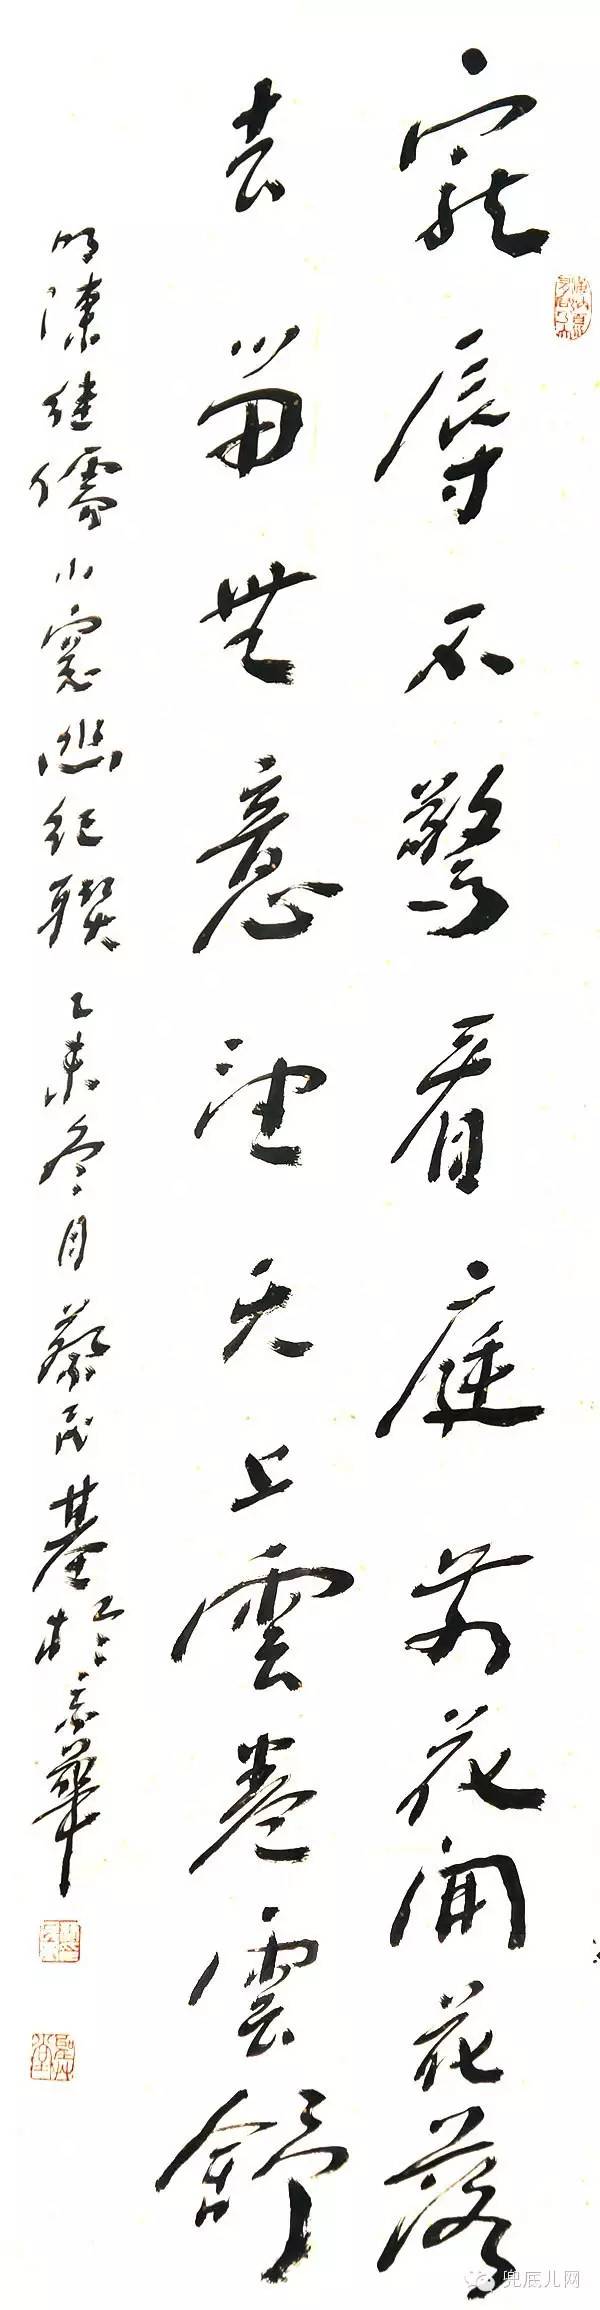 寵辱不驚看庭前花開花落
去留無意望天上雲卷雲舒
明陳继儒小窓幽纪联 乙未冬月蔡氏基於京華
兜底儿网